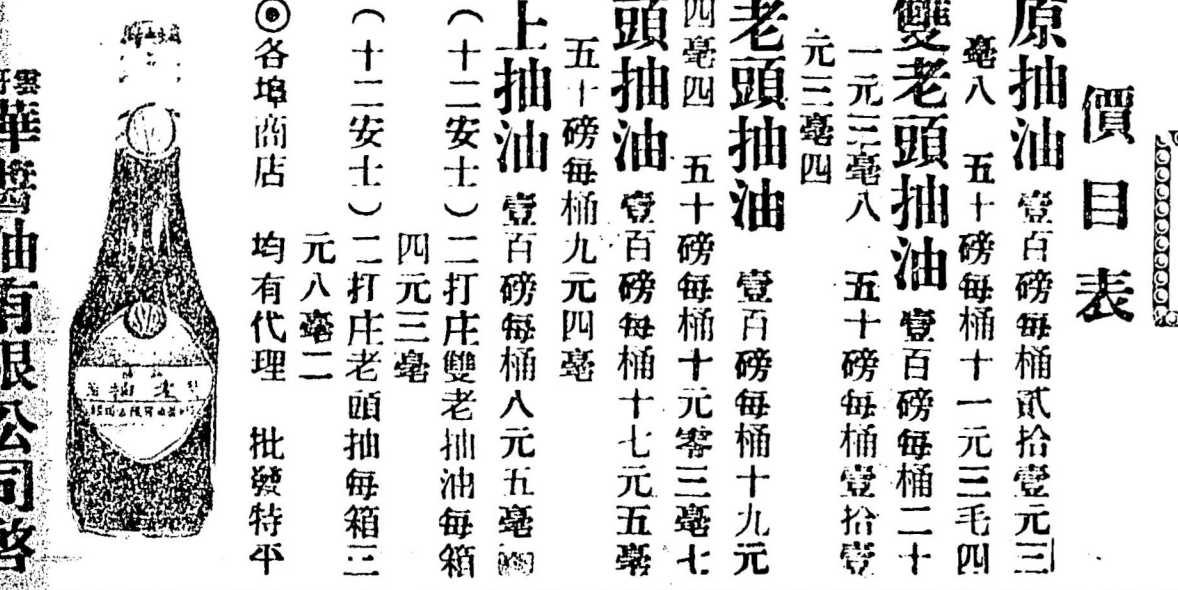 價目表
原抽油 壹百磅每桶貳拾壹元三
毫八 五十磅每桶十一元三毛四
雙老頭抽油 壹百磅每桶二十
一元三毫八 五十磅每桶壹拾壹
元三毫四
老頭抽油 壹百磅每桶十九元
四毫四 五十磅每桶十元零三毫七
頭抽油 壹百磅每桶十七元五毫
五十磅每桶九元四毫
上抽油 壹百磅每桶八元五毫
(十二安士)二打庄雙老抽油每箱
四元三毫
(十二安士)二打庄老頭抽每箱三
元八毫二
◎各埠商店 均有代理 批發特平
華醬油有限公司啓